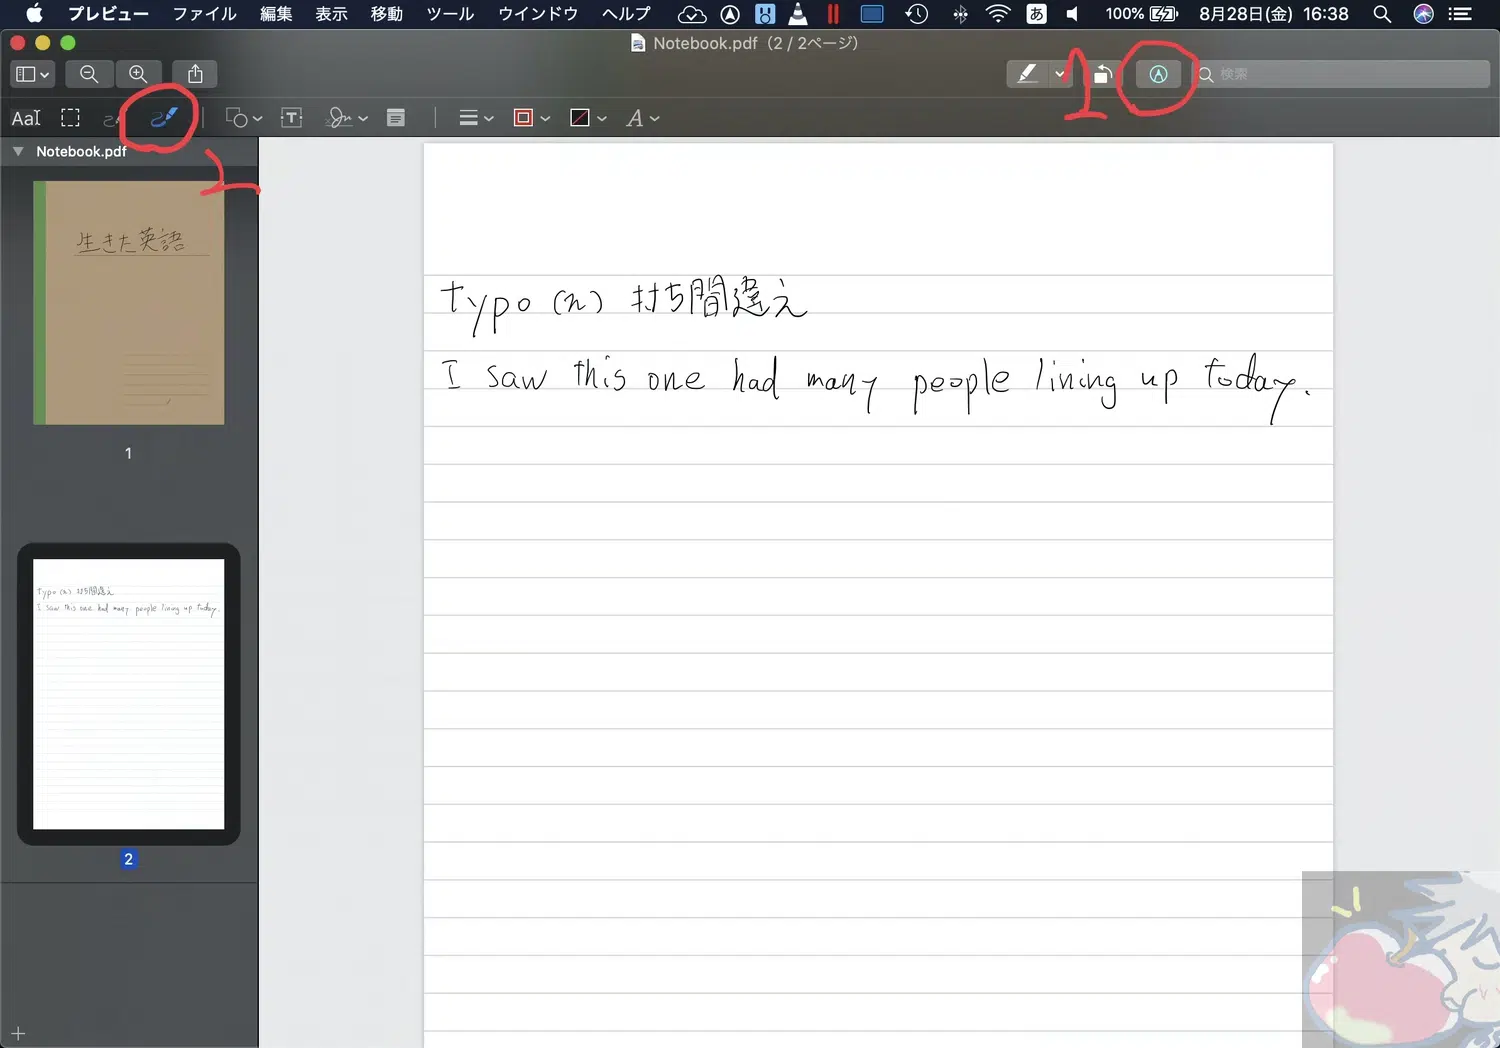 プレビュー ファイル 編集 表示 移動 ツール ウインドウ ヘルプ あ 100% 8月28日(金) 16:38
Notebook.pdf（2 / 2ページ）
1 検索
Aa T A
Notebook.pdf
2
生きた英語
1
typo (n) 打ち間違え
I saw this one had many people lining up today.
typo (n) 打ち間違え
I saw this one had many people lining up today.
2